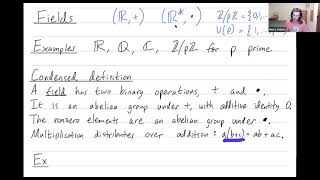 Fields (ℝ,+) (ℝ*,•) ℤ/pℤ = {0,...
U(p) = {1,...
Examples ℝ, ℚ, ℂ, ℤ/pℤ for p prime
Condensed definition
A field has two binary operations, + and •.
It is an abelian group under +, with additive identity 0.
The nonzero elements are an abelian group under •.
Multiplication distributes over addition: a(b+c) = ab + ac.
Ex